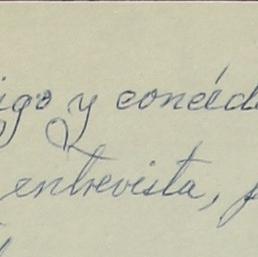 igo y concéd
entrevista,